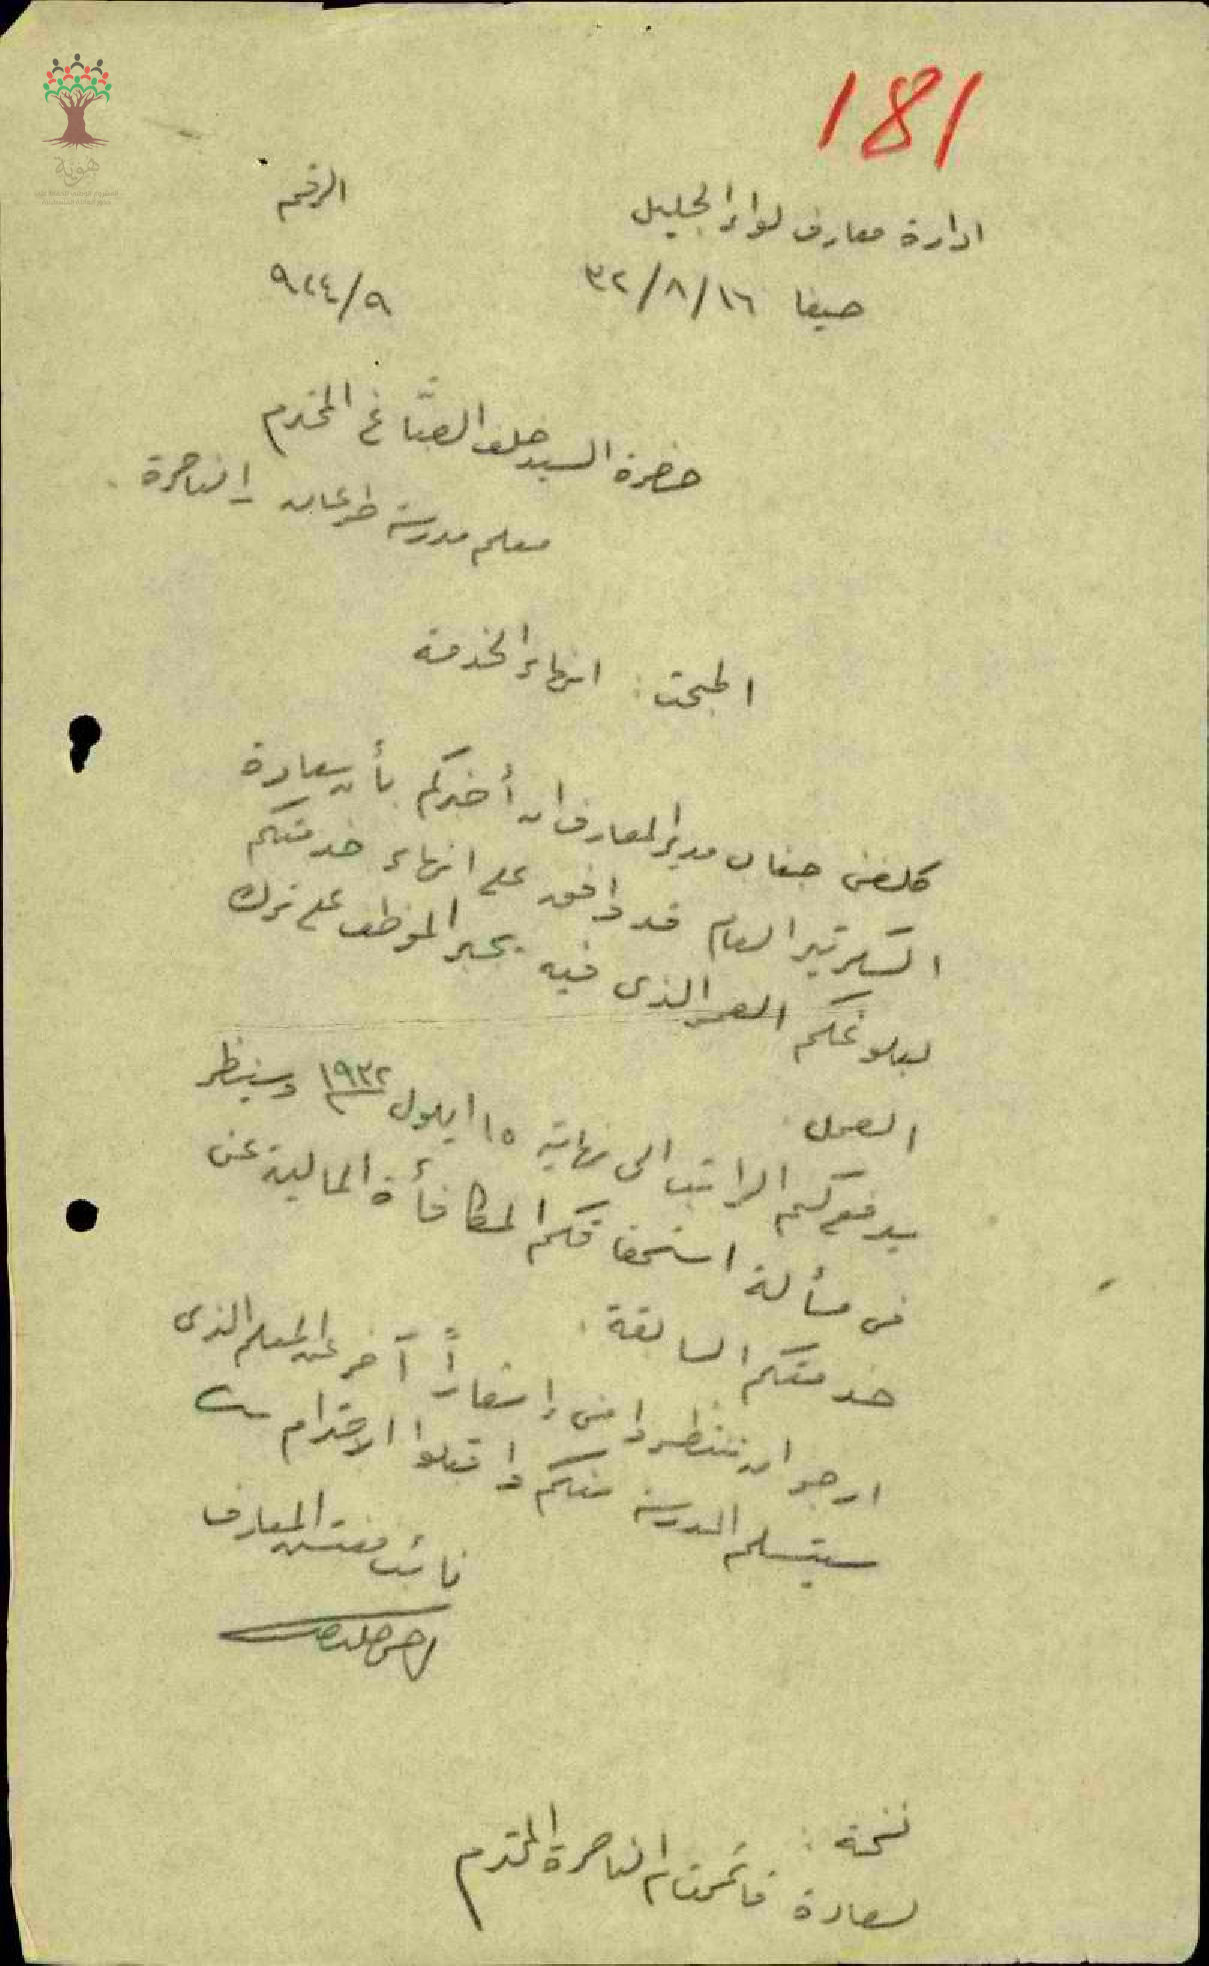 181
ادارة معارف لواء الجليل
الرقم
حيفا ١٦/٨/٣٢
٩/٩٢٤
حضرة السيد خلف الصبّاغ المحترم
معلم مدرسة طرعان - الناصرة
المبحث: انهاء الخدمة
كلفني جناب مدير المعارف ان أخبركم بأن سعادة
السكرتير العام قد وافق على انهاء خدمتكم
لبلوغكم العمر الذي فيه يجبر الموظف على ترك
العمل.
يدفع لكم الراتب الى نهاية ١٥ ايلول ١٩٣٢ وسينظر
في مسألة استحقاقكم المكافأة المالية عن
خدمتكم السابقة.
ارجو ان تنتظروا مني إشعاراً آخر عن المعلم الذي
سيتسلم المدرسة منكم واقبلوا الاحترام
نائب مفتش المعارف
نسخة:
لسعادة قائمقام الناصرة المحترم
هوية